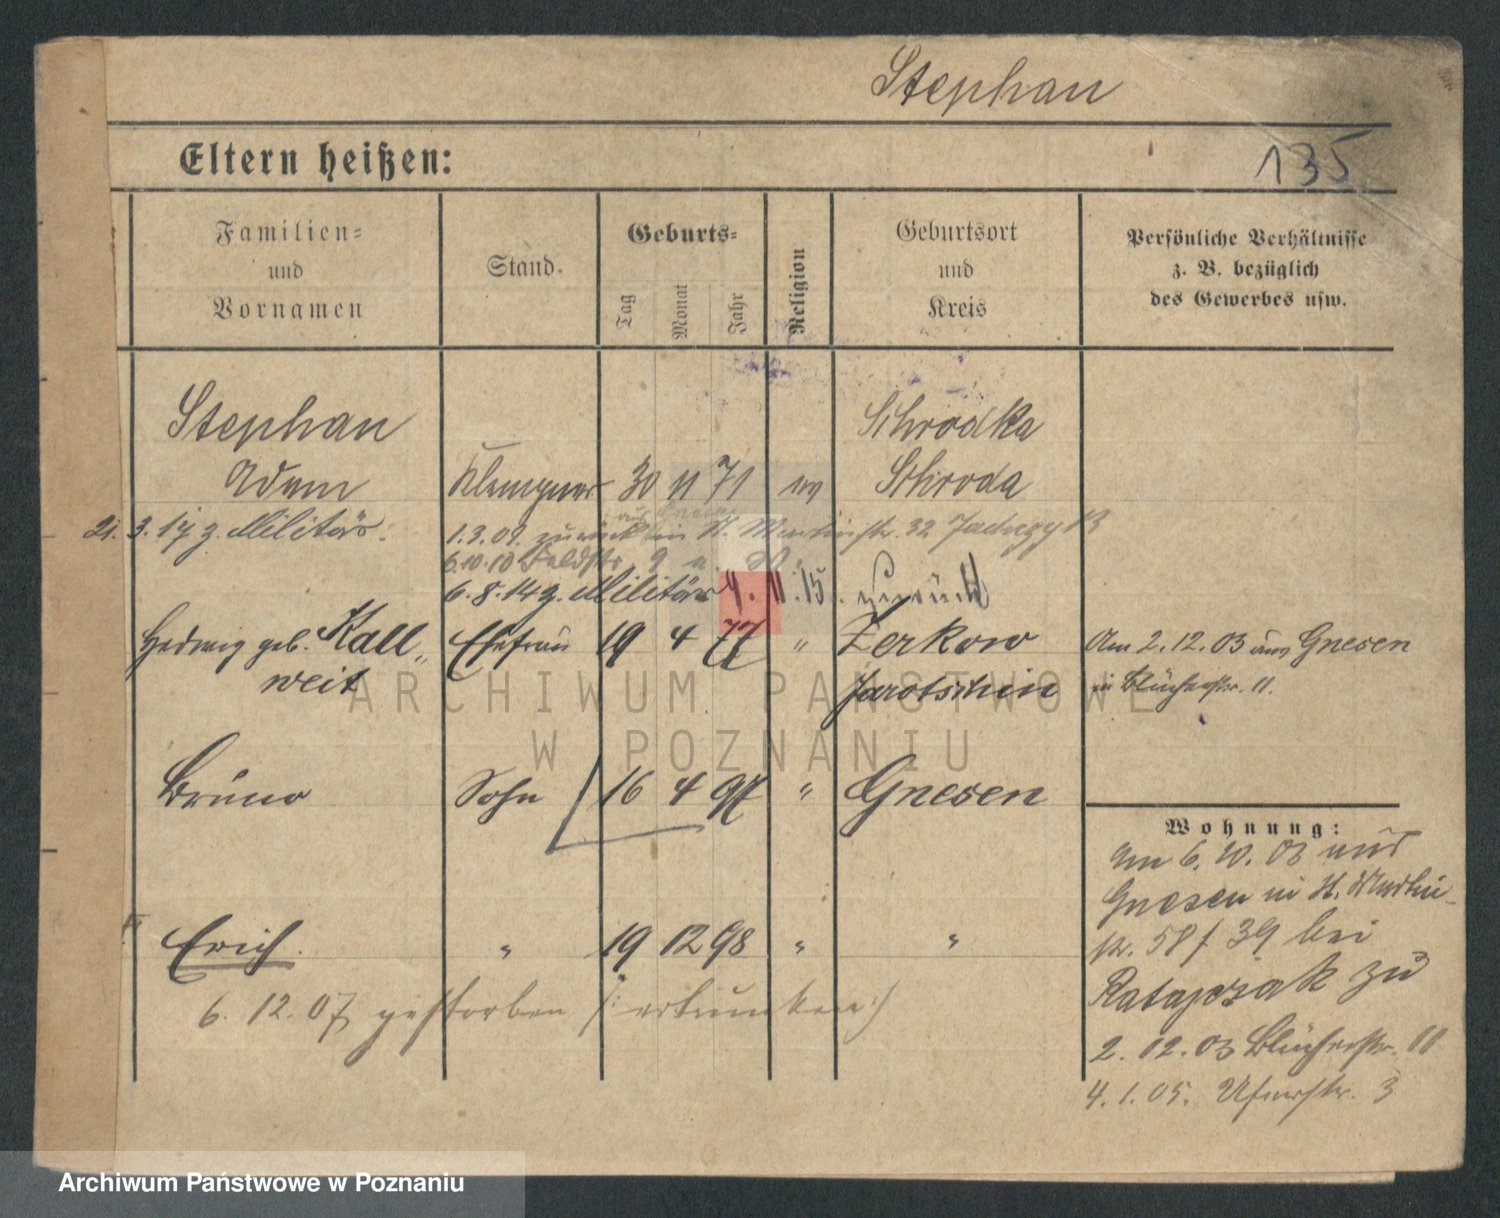 Stephan
Eltern heißen:
135
Familien-
und
Vornamen
Stand.
Geburts-
Tag
Monat
Jahr
Religion
Geburtsort
und
Kreis
Persönliche Verhältnisse
z. B. bezüglich
des Gewerbes usw.
Stephan
Schrodka
Adam
Klempner
30 11 71
ev
Schroda
21. 3. 17 z. Militär.
1.3.09. zurück in St. Martinstr. 32
6.10.10 Feldstr. 9
6.8.14 z. Militär 4. 11. 15. zurück
Hedwig geb. Kall„
weit
Ehefrau
19 4 77
"
Zerkow
Jarotschin
Am 2.12.03 aus Gnesen
in Blücherstr. 11.
Bruno
Sohn
16 4 97
"
Gnesen
Erich.
"
19 12 98
"
"
6. 12. 07 gestorben (: ertrunken :)
Wohnung:
Am 6. 10. 03 aus
Gnesen in St. Martin-
str. 58/39 bei
Ratajczak zu
2. 12. 03 Blücherstr. 11
4. 1. 05. Uferstr. 3
ARCHIWUM PAŃSTWOWE
W POZNANIU
Archiwum Państwowe w Poznaniu